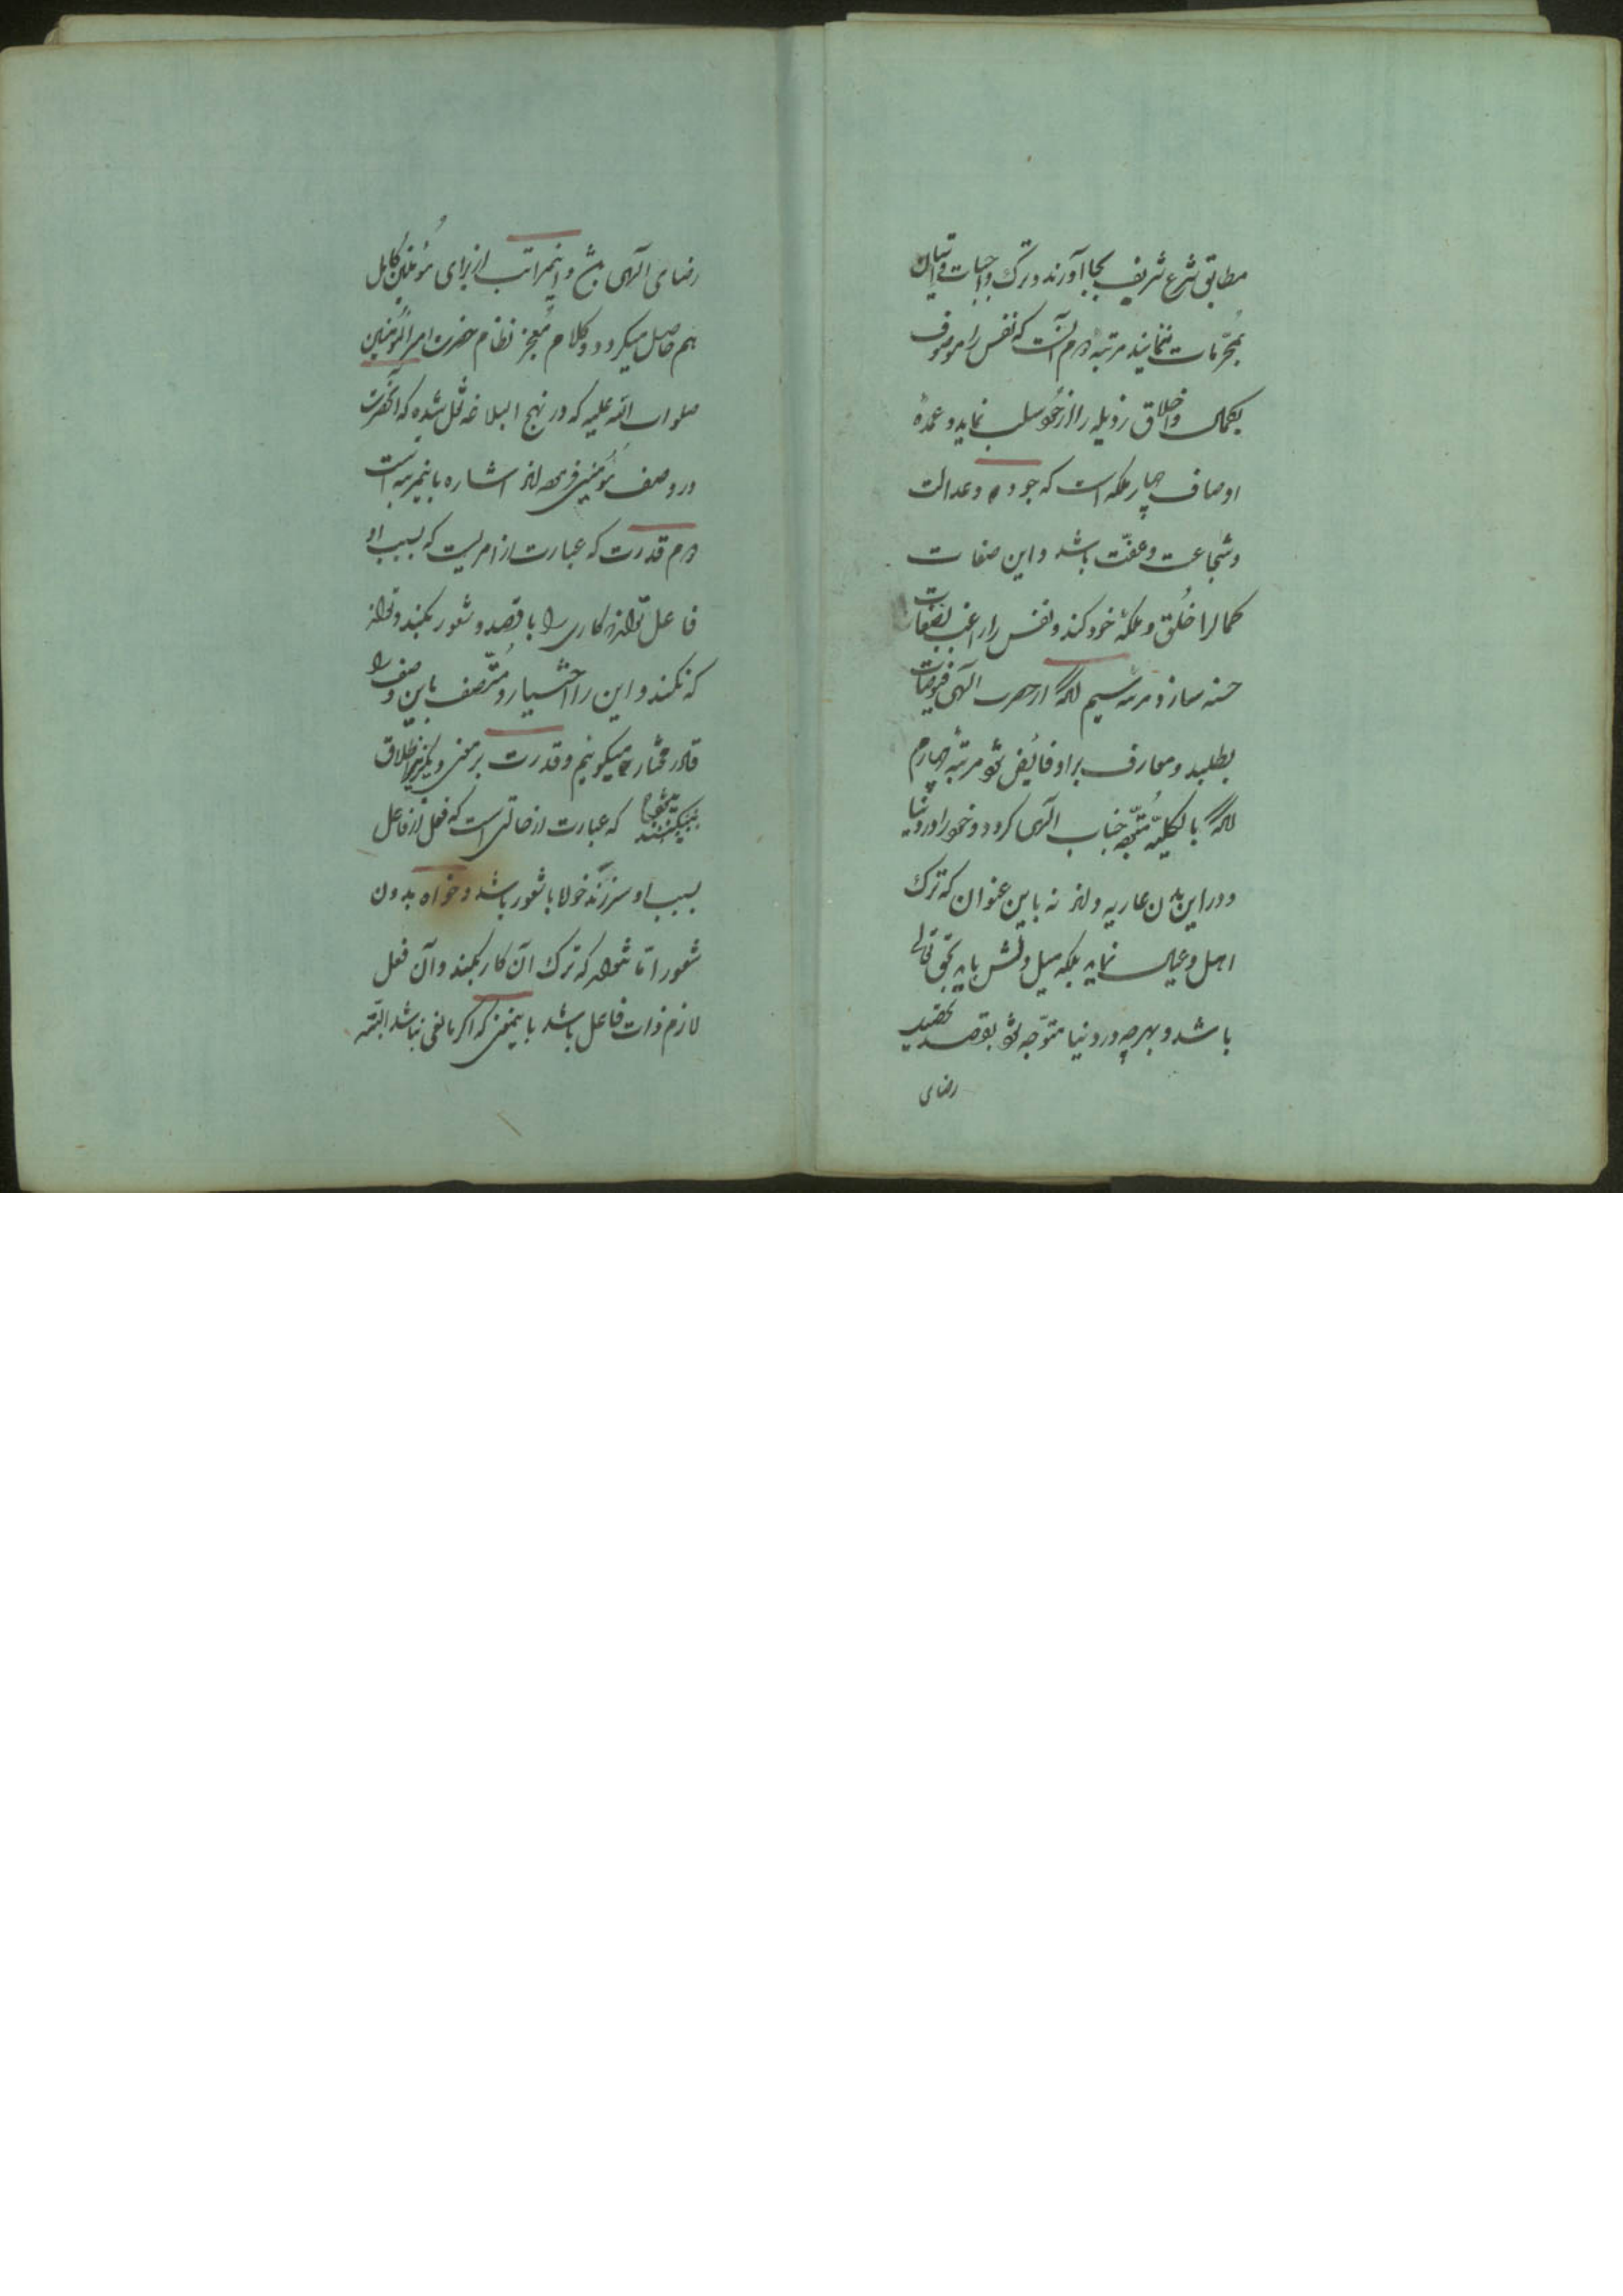 مطابق شرع شریف بجا آورند و ترک واجبات و اتیان
بمحرّمات ننمایند مرتبه دوم آنست که نفس را موصوف
بکمال و اخلاق رذیله را از خود سلب نماید و عمدهٔ
اوصاف چهار ملکه است که جود و عدالت
و شجاعت و عفّت باشد و این صفات
کمال را خُلق و ملکهٔ خود کند و نفس را راغب بصفات
حسنه سازد مرتبه سیم آنکه از حضرت الهی فیوضات
بطلبد و معارف بر او فائض شود مرتبهٔ چهارم
آنکه بالکلیّه متوجّه جناب الهی کردد و خود را در دنیا
و در این بدن عاریه داند نه باین عنوان که ترک
اهل و عیال نماید بلکه میل دلش باید بحق تعالی
باشد و بهر چه در دنیا متوّجه شود بقصد تحصیل
رضای
رضای الهی باشد و اینمراتب از برای مُؤمنین کامل
هم حاصل میکردد و کلام مُعجز نظام حضرت امیر المُؤمنین
صلوات الله علیه که در نهج البلاغه نقل شده که آنحضرت
در وصف مُؤمنین فرموده‌اند اشاره باینمرتبه است
دوم قدرت که عبارت از امریست که بسبب او
فاعل تواند کاری را با قصد و شعور بکند و تواند
که نکند و این را اختیار و مُتّصف باین وصف را
قادر مختار میکوئیم و قدرت بر معنی دیکر نیز اطلاق
میکنند که عبارت از حالتی است که فعل از فاعل
بسبب او سرزند خواه با شعور باشد و خواه بدون
شعور امّا نتواند که ترک آن کار بکند و آن فعل
لازم ذات فاعل باشد باینمعنی که اکر مانعی نباشد البتّه